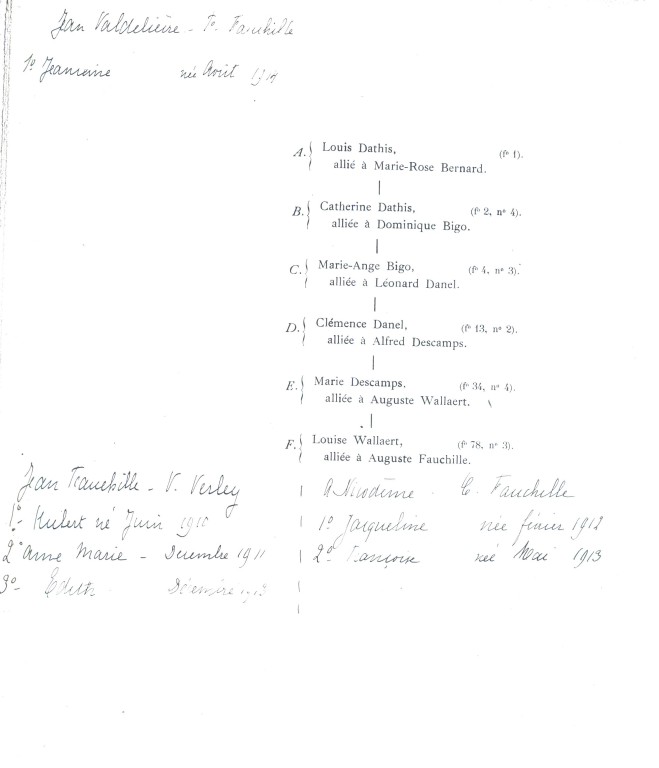 Jean Valdelièvre - Fauchille
1º Jeannine née Août 19
A. Louis Dathis, (fº 1).
allié à Marie-Rose Bernard.
B. Catherine Dathis, (fº 2, nº 4).
alliée à Dominique Bigo.
C. Marie-Ange Bigo, (fº 4, nº 3).
alliée à Léonard Danel.
D. Clémence Danel, (fº 13, nº 2).
alliée à Alfred Descamps.
E. Marie Descamps, (fº 34, nº 4).
alliée à Auguste Wallaert.
F. Louise Wallaert, (fº 78, nº 3).
alliée à Auguste Fauchille.
Jean Fauchille - V. Verley
1º- Hubert né Juin 1910
2º Anne Marie - Décembre 1911
3º- Edith Décembre 1913
A Nicodème - E. Fauchille
1º Jacqueline née février 1912
2º Françoise née Mai 1913